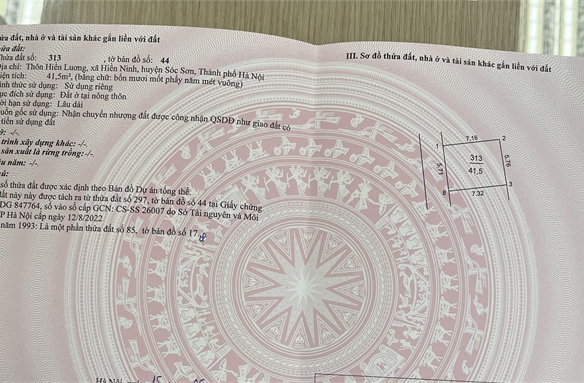 ửa đất, nhà ở và tài sản khác gắn liền với đất
ửa đất:
hửa đất số: 313 , tờ bản đồ số: 44
ịa chỉ: Thôn Hiền Lương, xã Hiền Ninh, huyện Sóc Sơn, Thành phố Hà Nội
iện tích: 41,5m², (bằng chữ: bốn mươi mốt phẩy năm mét vuông)
ình thức sử dụng: Sử dụng riêng
ục đích sử dụng: Đất ở tại nông thôn
ời hạn sử dụng: Lâu dài
uồn gốc sử dụng: Nhận chuyển nhượng đất được công nhận QSDĐ như giao đất có
tiền sử dụng đất
ở: -/-.
trình xây dựng khác: -/-.
sản xuất là rừng trồng: -/-.
u năm: -/-.
ú:
số thửa đất được xác định theo Bản đồ Dự án tổng thể:
đất này được tách ra từ thửa đất số 297, tờ bản đồ số 44 tại Giấy chứng
DG 847764, số vào sổ cấp GCN: CS-SS 26007 do Sở Tài nguyên và Môi
P Hà Nội cấp ngày 12/8/2022
năm 1993: Là một phần thửa đất số 85, tờ bản đồ số 17
Hà Nội, 15
III. Sơ đồ thửa đất, nhà ở và tài sản khác gắn liền với đất
1 7.16 2
5.71 313 5.76
41.5
8 7.32 3